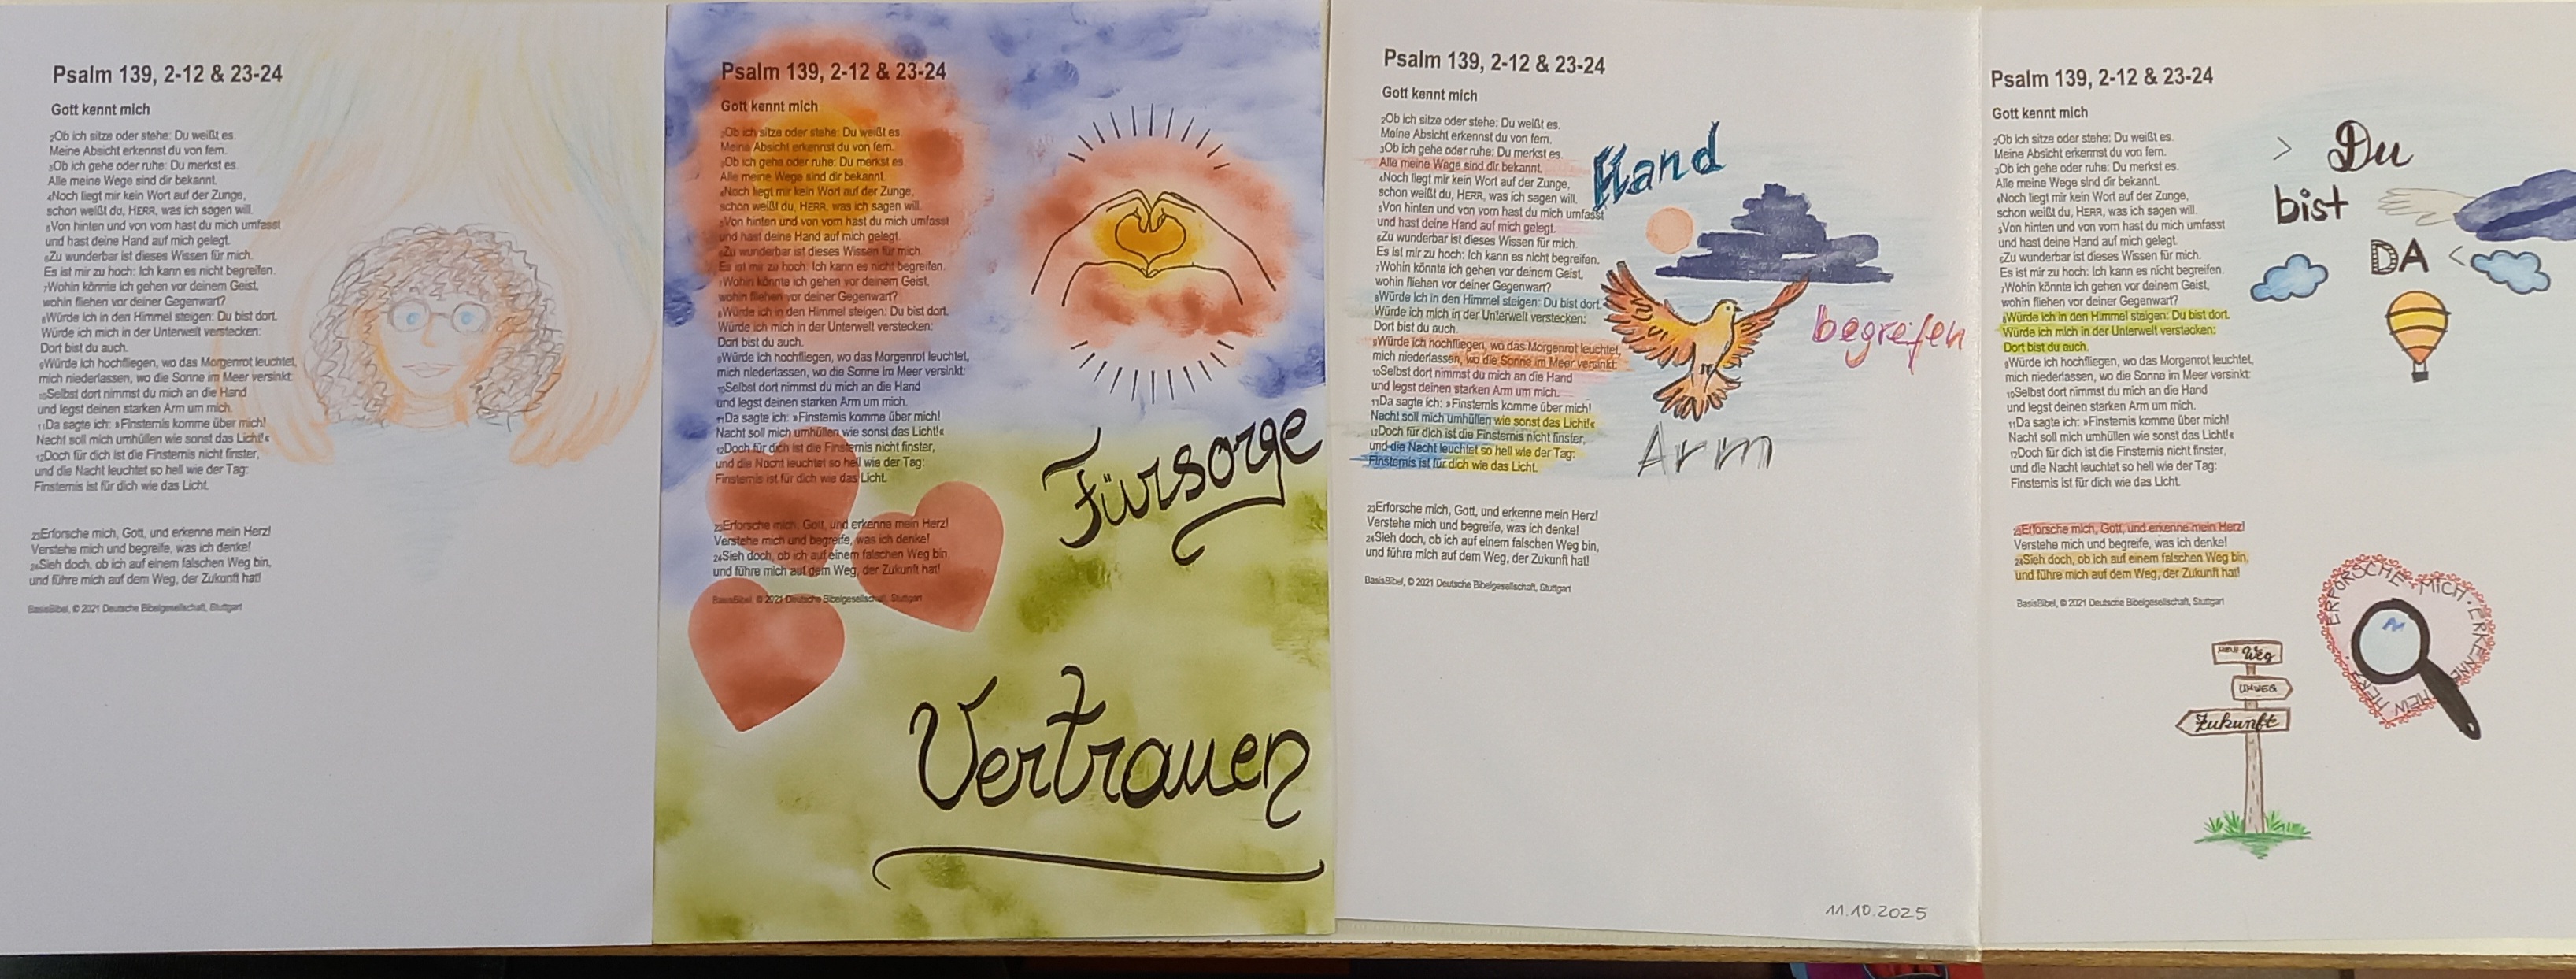 Psalm 139, 2-12 & 23-24
Gott kennt mich
2Ob ich sitze oder stehe: Du weißt es.
Meine Absicht erkennst du von fern.
3Ob ich gehe oder ruhe: Du merkst es.
Alle meine Wege sind dir bekannt.
4Noch liegt mir kein Wort auf der Zunge,
schon weißt du, HERR, was ich sagen will.
5Von hinten und von vorn hast du mich umfasst
und hast deine Hand auf mich gelegt.
6Zu wunderbar ist dieses Wissen für mich.
Es ist mir zu hoch: Ich kann es nicht begreifen.
7Wohin könnte ich gehen vor deinem Geist,
wohin fliehen vor deiner Gegenwart?
8Würde ich in den Himmel steigen: Du bist dort.
Würde ich mich in der Unterwelt verstecken:
Dort bist du auch.
9Würde ich hochfliegen, wo das Morgenrot leuchtet,
mich niederlassen, wo die Sonne im Meer versinkt:
10Selbst dort nimmst du mich an die Hand
und legst deinen starken Arm um mich.
11Da sagte ich: »Finsternis komme über mich!
Nacht soll mich umhüllen wie sonst das Licht!«
12Doch für dich ist die Finsternis nicht finster,
und die Nacht leuchtet so hell wie der Tag:
Finsternis ist für dich wie das Licht.
23Erforsche mich, Gott, und erkenne mein Herz!
Verstehe mich und begreife, was ich denke!
24Sieh doch, ob ich auf einem falschen Weg bin,
und führe mich auf dem Weg, der Zukunft hat!
BasisBibel, © 2021 Deutsche Bibelgesellschaft, Stuttgart
Psalm 139, 2-12 & 23-24
Gott kennt mich
2Ob ich sitze oder stehe: Du weißt es.
Meine Absicht erkennst du von fern.
3Ob ich gehe oder ruhe: Du merkst es.
Alle meine Wege sind dir bekannt.
4Noch liegt mir kein Wort auf der Zunge,
schon weißt du, HERR, was ich sagen will.
5Von hinten und von vorn hast du mich umfasst
und hast deine Hand auf mich gelegt.
6Zu wunderbar ist dieses Wissen für mich.
Es ist mir zu hoch: Ich kann es nicht begreifen.
7Wohin könnte ich gehen vor deinem Geist,
wohin fliehen vor deiner Gegenwart?
8Würde ich in den Himmel steigen: Du bist dort.
Würde ich mich in der Unterwelt verstecken:
Dort bist du auch.
9Würde ich hochfliegen, wo das Morgenrot leuchtet,
mich niederlassen, wo die Sonne im Meer versinkt:
10Selbst dort nimmst du mich an die Hand
und legst deinen starken Arm um mich.
11Da sagte ich: »Finsternis komme über mich!
Nacht soll mich umhüllen wie sonst das Licht!«
12Doch für dich ist die Finsternis nicht finster,
und die Nacht leuchtet so hell wie der Tag:
Finsternis ist für dich wie das Licht.
23Erforsche mich, Gott, und erkenne mein Herz!
Verstehe mich und begreife, was ich denke!
24Sieh doch, ob ich auf einem falschen Weg bin,
und führe mich auf dem Weg, der Zukunft hat!
BasisBibel, © 2021 Deutsche Bibelgesellschaft, Stuttgart
Fürsorge
Vertrauen
Psalm 139, 2-12 & 23-24
Gott kennt mich
2Ob ich sitze oder stehe: Du weißt es.
Meine Absicht erkennst du von fern.
3Ob ich gehe oder ruhe: Du merkst es.
Alle meine Wege sind dir bekannt.
4Noch liegt mir kein Wort auf der Zunge,
schon weißt du, HERR, was ich sagen will.
5Von hinten und von vorn hast du mich umfasst
und hast deine Hand auf mich gelegt.
6Zu wunderbar ist dieses Wissen für mich.
Es ist mir zu hoch: Ich kann es nicht begreifen.
7Wohin könnte ich gehen vor deinem Geist,
wohin fliehen vor deiner Gegenwart?
8Würde ich in den Himmel steigen: Du bist dort.
Würde ich mich in der Unterwelt verstecken:
Dort bist du auch.
9Würde ich hochfliegen, wo das Morgenrot leuchtet,
mich niederlassen, wo die Sonne im Meer versinkt:
10Selbst dort nimmst du mich an die Hand
und legst deinen starken Arm um mich.
11Da sagte ich: »Finsternis komme über mich!
Nacht soll mich umhüllen wie sonst das Licht!«
12Doch für dich ist die Finsternis nicht finster,
und die Nacht leuchtet so hell wie der Tag:
Finsternis ist für dich wie das Licht.
23Erforsche mich, Gott, und erkenne mein Herz!
Verstehe mich und begreife, was ich denke!
24Sieh doch, ob ich auf einem falschen Weg bin,
und führe mich auf dem Weg, der Zukunft hat!
BasisBibel, © 2021 Deutsche Bibelgesellschaft, Stuttgart
Hand
begreifen
Arm
11.10.2025
Psalm 139, 2-12 & 23-24
Gott kennt mich
2Ob ich sitze oder stehe: Du weißt es.
Meine Absicht erkennst du von fern.
3Ob ich gehe oder ruhe: Du merkst es.
Alle meine Wege sind dir bekannt.
4Noch liegt mir kein Wort auf der Zunge,
schon weißt du, HERR, was ich sagen will.
5Von hinten und von vorn hast du mich umfasst
und hast deine Hand auf mich gelegt.
6Zu wunderbar ist dieses Wissen für mich.
Es ist mir zu hoch: Ich kann es nicht begreifen.
7Wohin könnte ich gehen vor deinem Geist,
wohin fliehen vor deiner Gegenwart?
8Würde ich in den Himmel steigen: Du bist dort.
Würde ich mich in der Unterwelt verstecken:
Dort bist du auch.
9Würde ich hochfliegen, wo das Morgenrot leuchtet,
mich niederlassen, wo die Sonne im Meer versinkt:
10Selbst dort nimmst du mich an die Hand
und legst deinen starken Arm um mich.
11Da sagte ich: »Finsternis komme über mich!
Nacht soll mich umhüllen wie sonst das Licht!«
12Doch für dich ist die Finsternis nicht finster,
und die Nacht leuchtet so hell wie der Tag:
Finsternis ist für dich wie das Licht.
23Erforsche mich, Gott, und erkenne mein Herz!
Verstehe mich und begreife, was ich denke!
24Sieh doch, ob ich auf einem falschen Weg bin,
und führe mich auf dem Weg, der Zukunft hat!
BasisBibel, © 2021 Deutsche Bibelgesellschaft, Stuttgart
> Du
bist
DA <
ERFORSCHE · MICH · ERKENNE MEIN HERZ
Weg
UMWEG
Zukunft